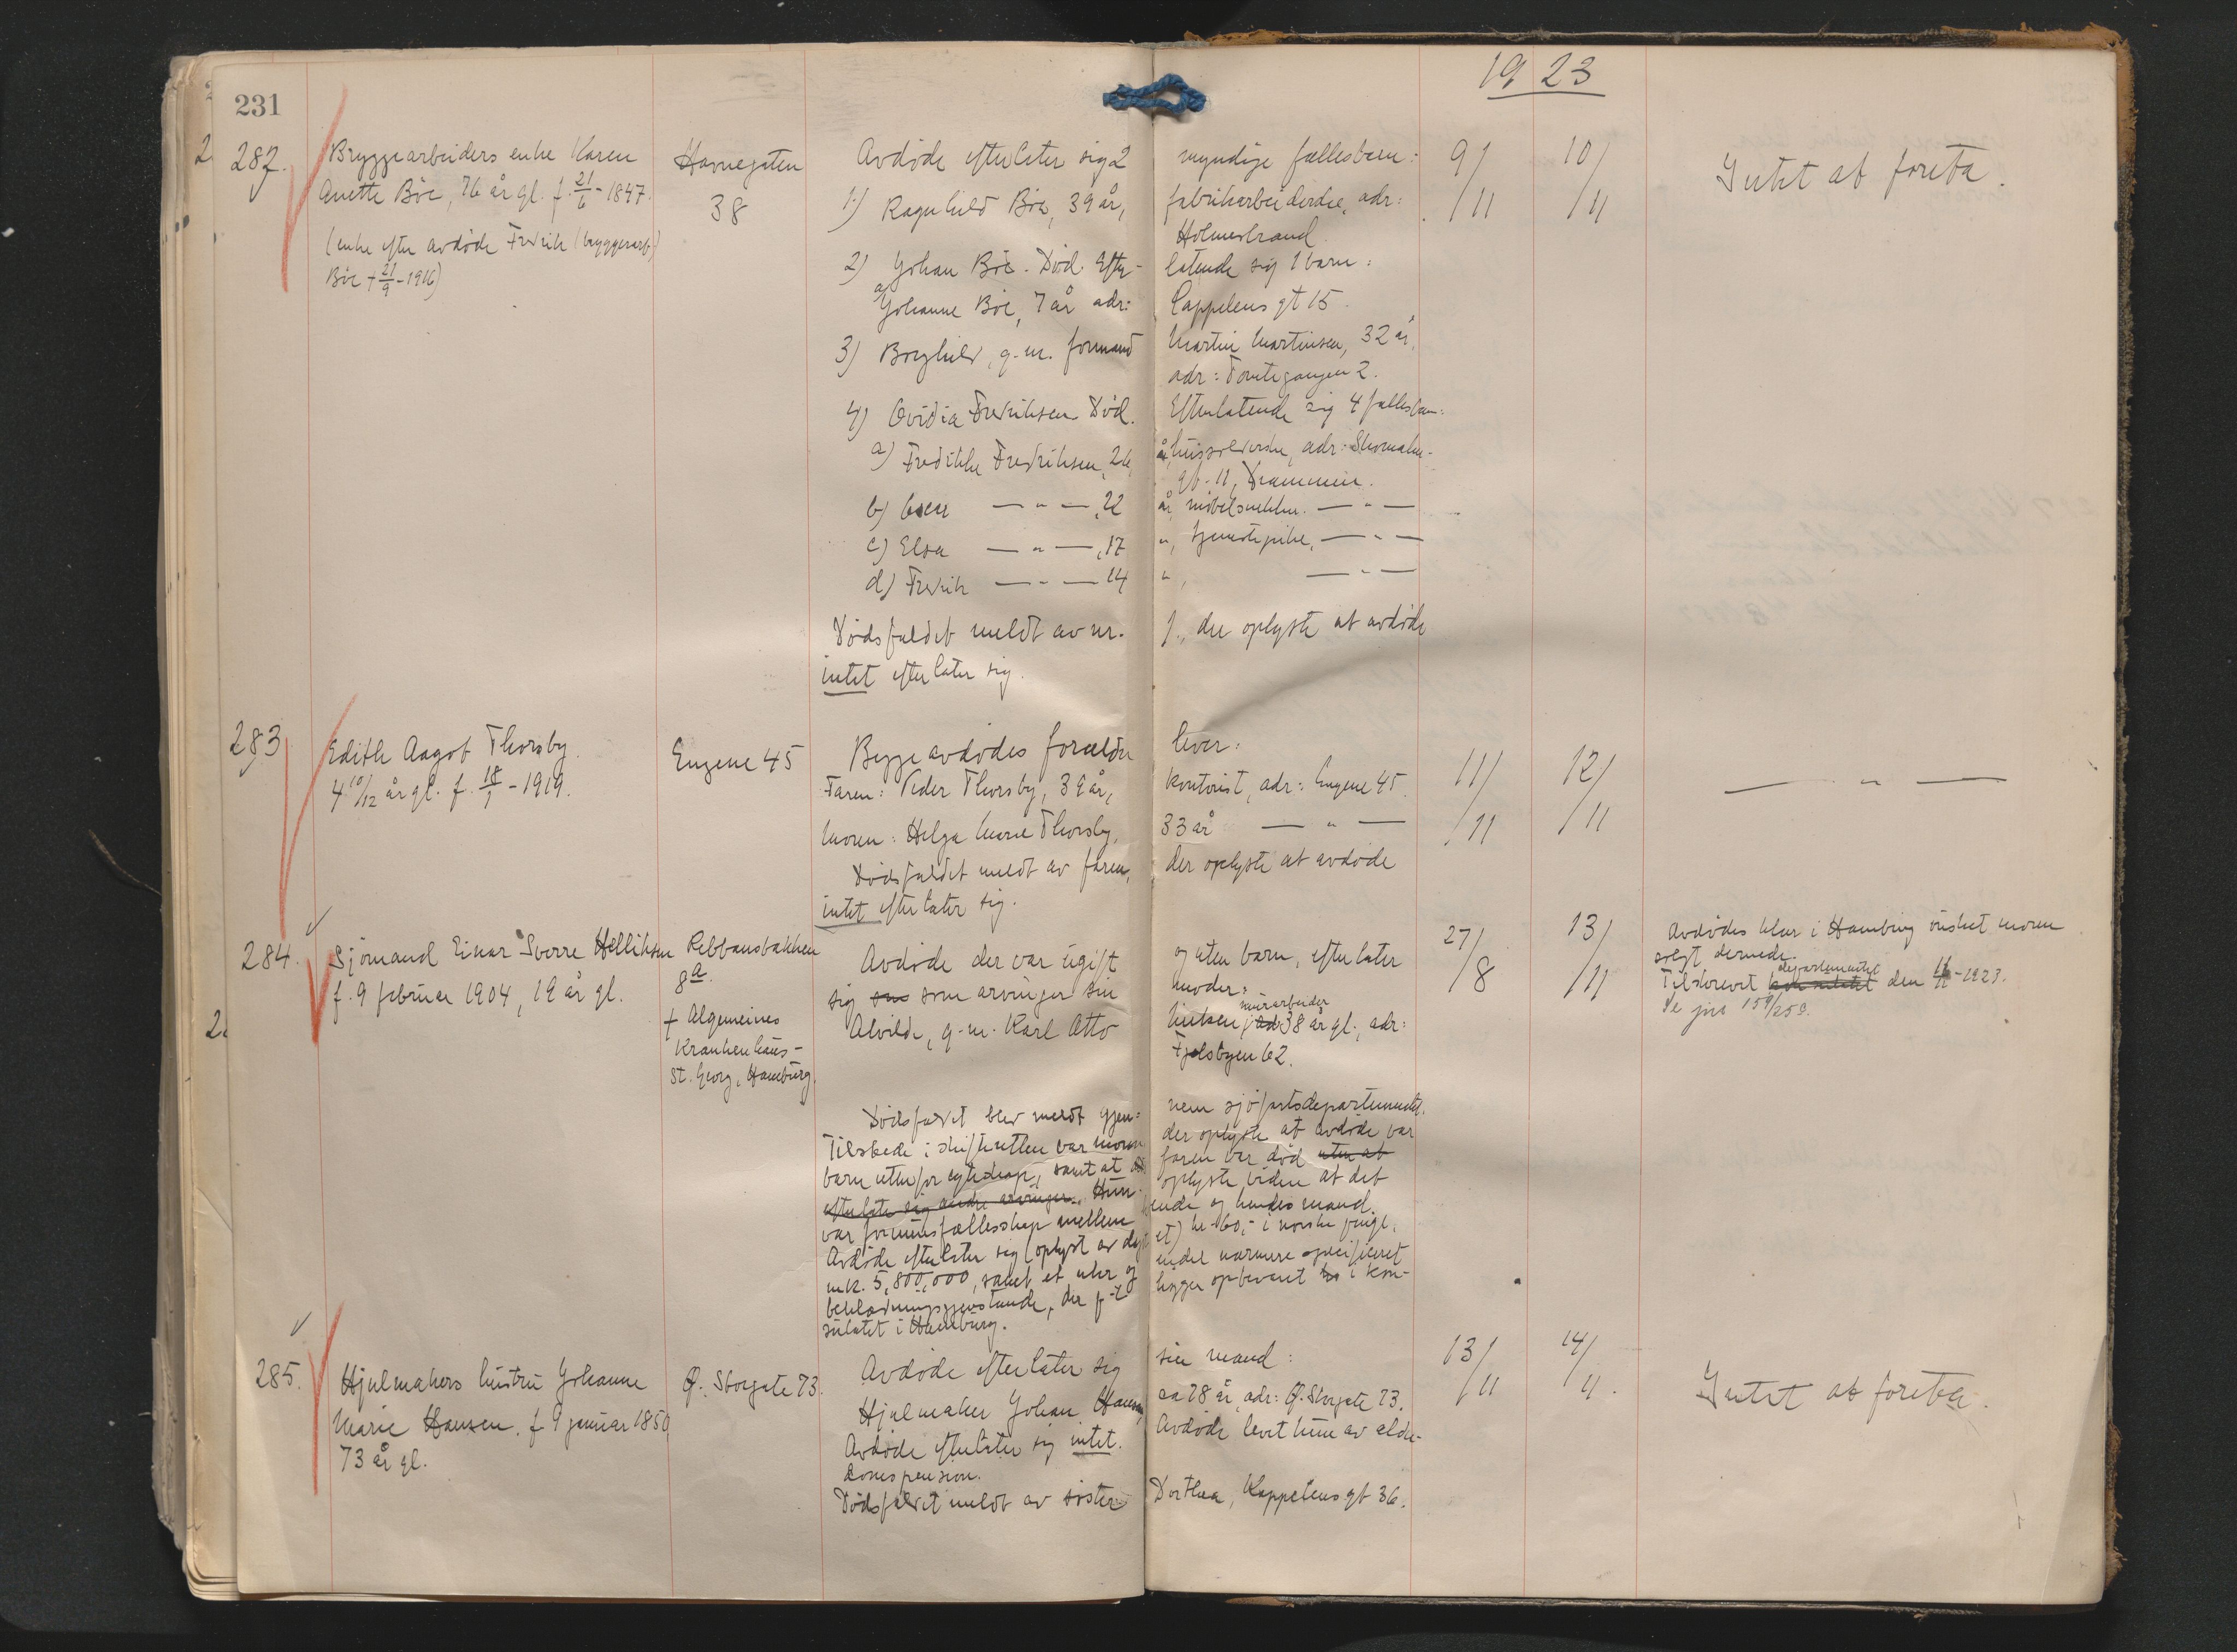 231
1923
282.
Bryggearbeiders enke Karen
Anette Böe, 76 år gl. f. 21/6 - 1847.
(enke efter avdöde Fredrik (bryggearb)
Böe + 21/9 - 1916)
Havnegaten
38
Avdöde efterlater sig 2 myndige fællesbarn:
1) Ragnhild Böe, 39 år, fabrikarbeiderske, adr:
Holmestrand
2) Johan Böe. Död. Efter- latende sig 1 barn:
a) Johanne Böe, 7 år adr: Cappelens gt 15.
3) Borghild, g.m. formand Martin Martinsen, 32 år,
adr: Tomtegangen 2.
4) Ovidia Fredriksen Död. Efterlatende sig 4 fællesbarn:
a) Fredikke Fredriksen, 26, år, adr: Skomaker-
gt. 11, Drammen.
b) — " — , 22 år, möbelsnekker. — " —
c) Elsa — " — , 17 ", tjenestepike, — " —
d) Fredrik — " — 14 ", — " —
Dödsfaldet meldt av nr. 1, der oplyste at avdöde
intet efterlater sig.
9/11
10/11
Intet at foreta.
283
Edith Aagot Thorsby.
4 10/12 år gl. f. 18/1 - 1919.
Eugene 45
Begge avdödes forældre lever:
Faren: Peder Thorsby, 39 år, kontorist, adr: Eugene 45.
Moren: Helga Marie Thorsby, 33 år — " —
Dödsfaldet meldt av faren, der oplyste at avdöde
intet efterlater sig.
11/11
12/11
— " —
284.
Sjömand Einar Sverre Helliksen
f. 9 februar 1904, 19 år gl.
Rebbansbakken
8a.
+ Algemeines
Krankenhaus-
St. Georg, Hamburg.
Avdöde der var ugift og uten barn, efterlater
sig som arvinger sin moder:
Alvilde, g.m. Karl Otto Knutsen, murarbeider 38 år gl., adr:
Fjelsbyen 62.
Dödsfaldet blev meldt gjen- nem sjöfartsdepartementet.
Tilstede i skifteretten var moren der oplyste at avdöde var
barn utenfor egteskap, samt at faren var död uten at
efterlate sig andre arvinger. Hun oplyste viden at det
var formuesfællesskap mellem hende og hendes mand.
Avdöde efterlater sig (oplyst av dept et) kr. 60,- i norske penge,
mk. 5,800,000, samt et uhr og endel nærmere specificeret
beklædningsgjenstande, der p-t ligger opbevaret i kon-
sulatet i Hamburg.
27/8
13/11
Avdödes klær i Hamburg önsket moren
solgt dernede.
Tilskrevet departementet den 16/11 - 1923.
Se jnr 159/253.
285.
Hjulmakers hustru Johanne
Marie Hansen. f 9 januar 1850
73 år gl.
Ö. Storgate 73.
Avdöde efterlater sig sin mand:
Hjulmaker Johan Hansen, ca 78 år, adr: Ö. Storgate 73.
Avdöde efterlater sig intet. Avdöde levet kun av alder-
domspension.
Dödsfaldet meldt av söster Dorthea, Kappelens gt 36.
13/11
14/11.
Intet at foreta.